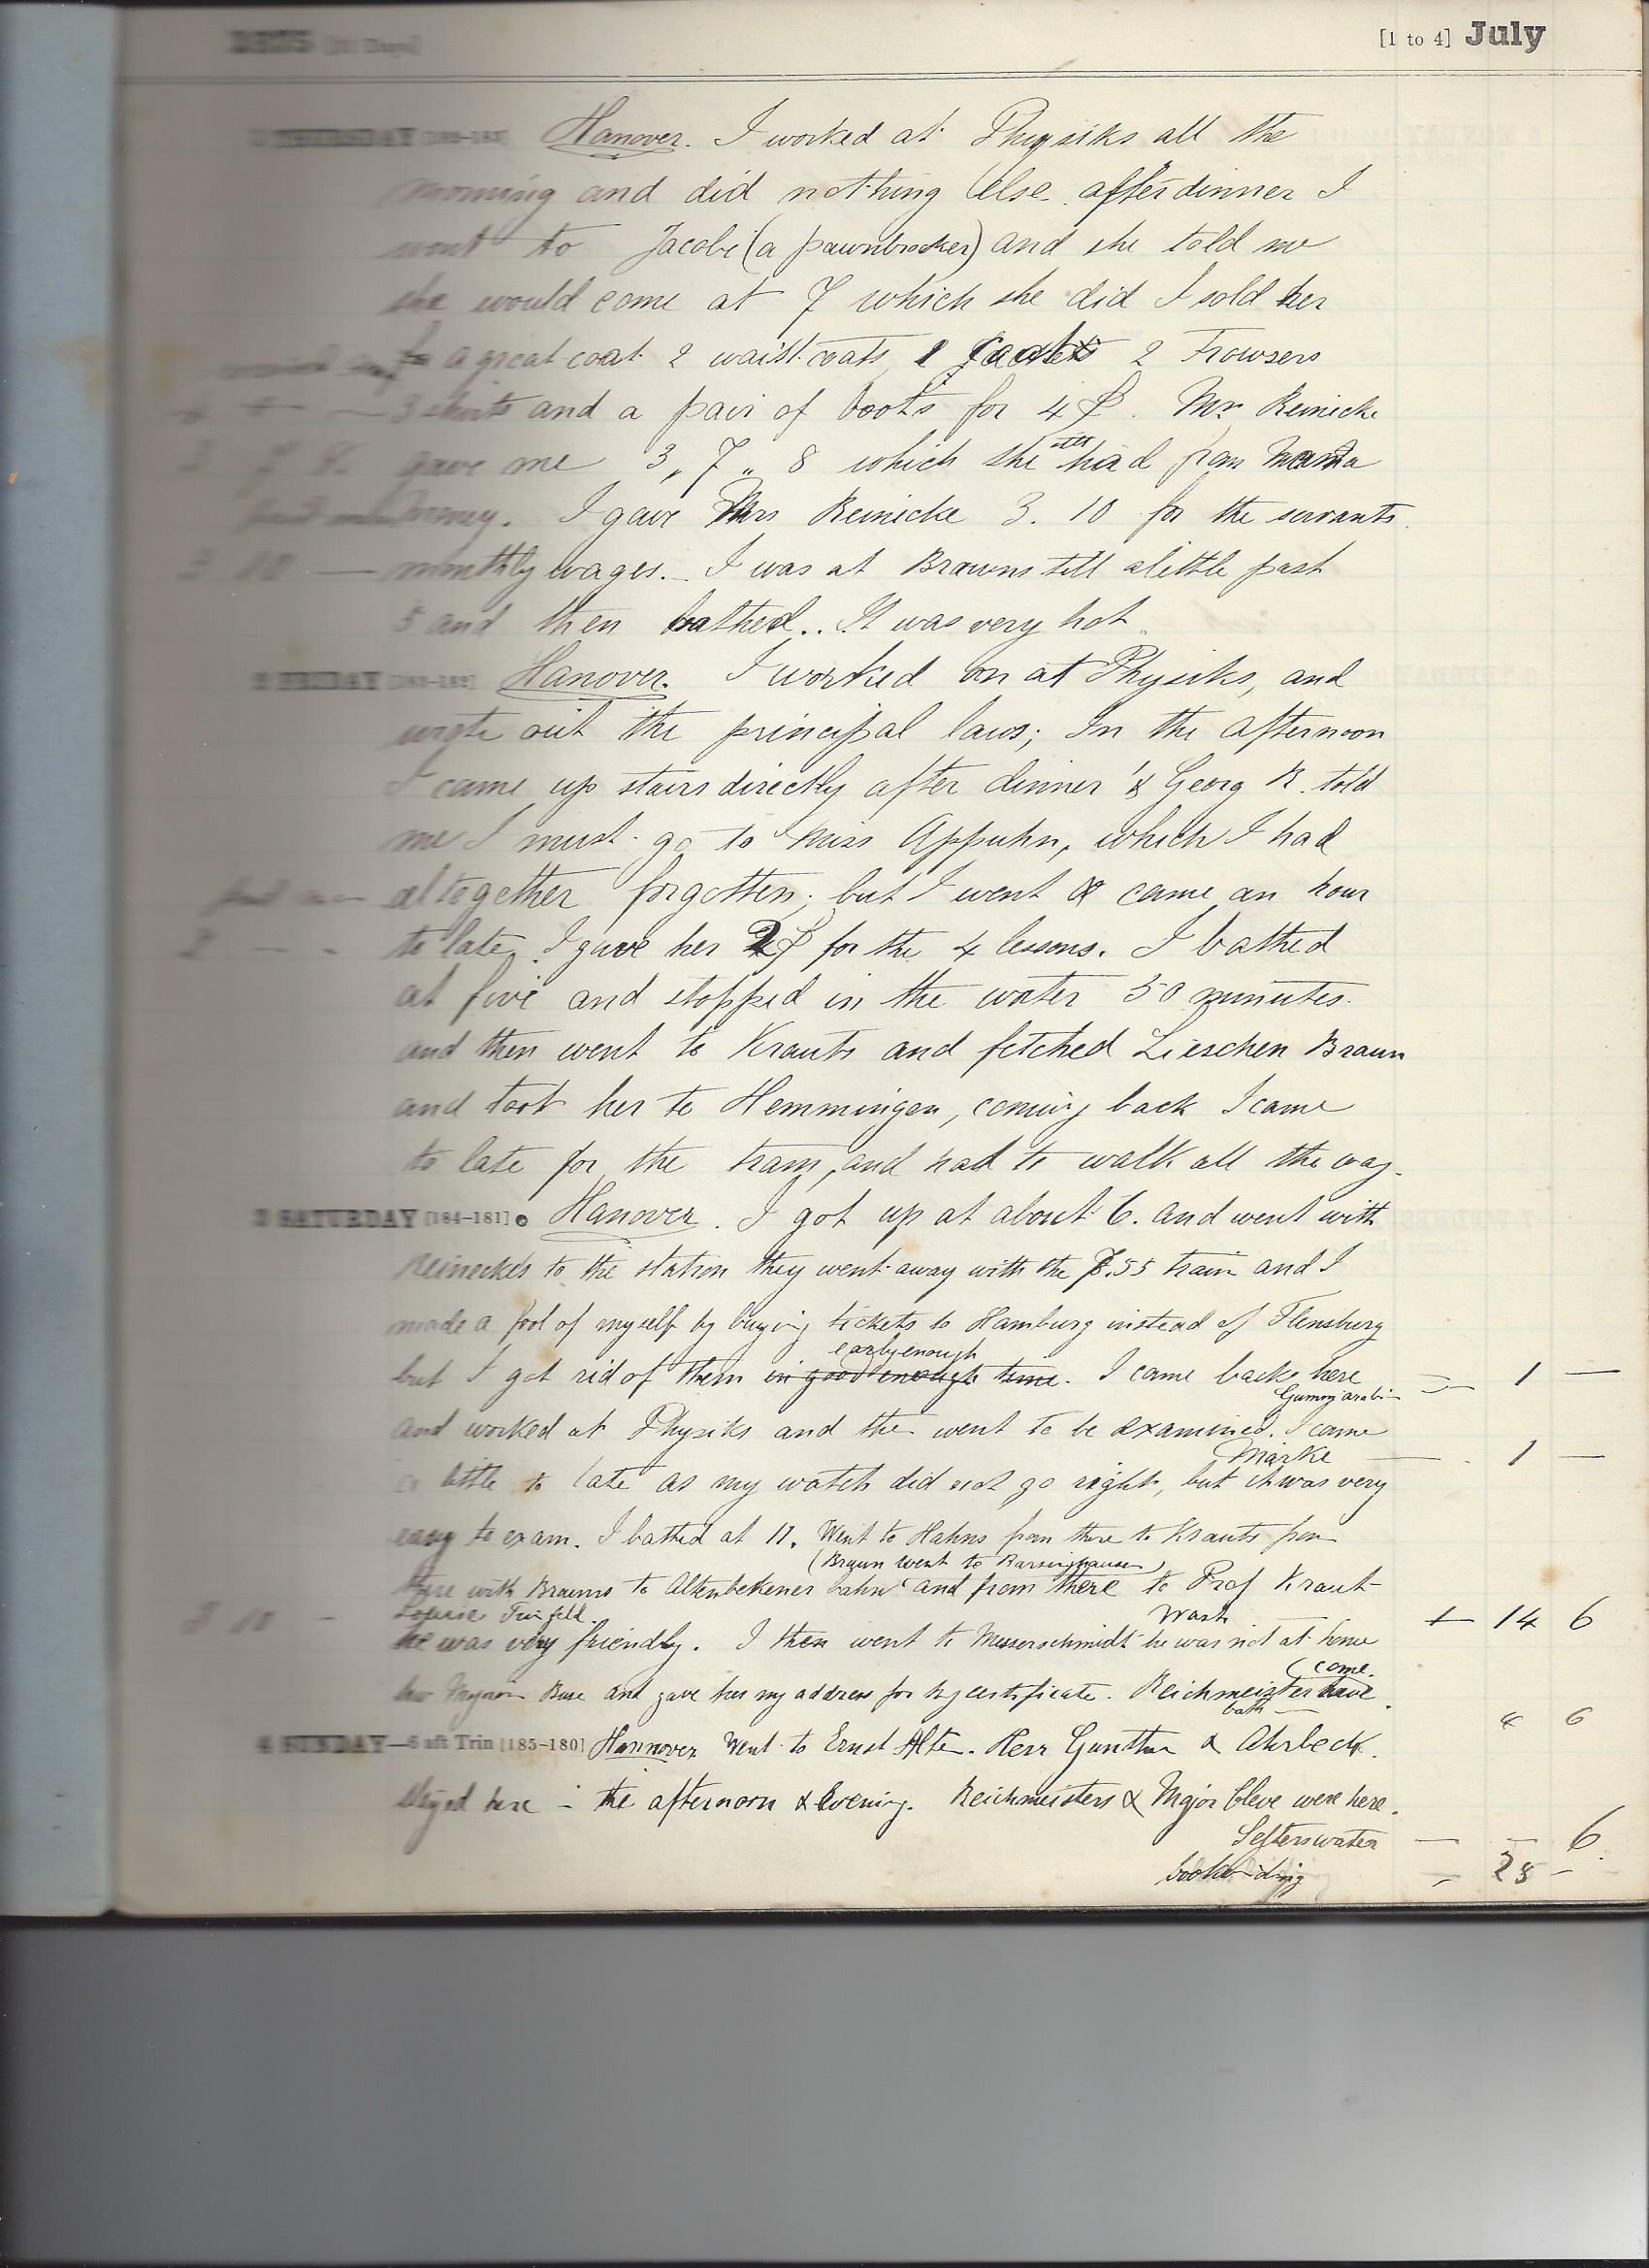 1875 [31 Days] [1 to 4] July
1 THURSDAY [182-183] Hanover. I worked at Physiks all the
morning and did nothing else. after dinner I
went to Jacobi (a pawnbrocker) and she told me
she would come at 7 which she did I sold her
a great coat 2 waist coats, 2 Trowsers
3 shirts and a pair of boots for 4 Mrs Reinicke
gave me 3, 7 " 8 which she still had from Mama
money. I gave Mrs Reinicke 3. 10 for the servants
3 10 — monthly wages. I was at Browns till a little past
5 and then bathed.. It was very hot
2 FRIDAY [183-182] Hanover. I worked on at Physiks, and
wrote out the principal laws; In the afternoon
I came up stairs directly after dinner & Georg R. told
me I must go to Miss Appuhn, which I had
altogether forgotten; but I went & came an hour
2 — - to late, I gave her 2 for the 4 lessons. I bathed
at five and stopped in the water 50 minutes.
and then went to Krauts and fetched Lieschen Braun
and took her to Hemmingen, coming back I came
to late for the tram, and had to walk all the way.
3 SATURDAY [184-181] Hanover. I got up at about 6. and went with
Reineckes to the station they went away with the 7.55 train and I
made a fool of myself by buying tickets to Hamburg instead of Flensburg
early enough
but I got rid of them in good enough time. I came back here — 1 —
Gummy arabi
and worked at Physiks and the went to be examined. I came
Marke — 1 —
a little to late as my watch did not go right, but it was very
easy to exam. I bathed at 11. Went to Hahns from there to Krauts from
(Braun went to Barsinghausen)
there with Browns to Altenbekener bahn and from there to Prof Kraut
3 10 - Louise Wash + 14 6
he was very friendly. I then went to Messerschmidt he was not at home
and gave her my address for my certificate. Reichmeister have
(come.
bath — 4 6
4 SUNDAY—6 aft Trin [185-180] Hannover Went to Ernst Alten. Herr Gunther & Ahrbeck.
Stayed here - the afternoon & Evening. Reichmeisters & Major Cleve were here.
Selterswater — - 6.
bookbinding - 28 -